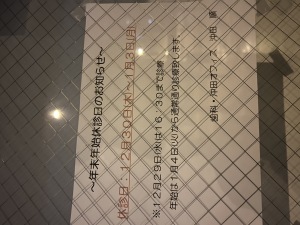 ～年末年始休診日のお知らせ～
休診日：12月30日(木)～1月3日(月)
※12月29日(水)は16：30まで診療
年始は1月4日(火)から通常通り診療致します。
歯科・沖田オフィス 沖田